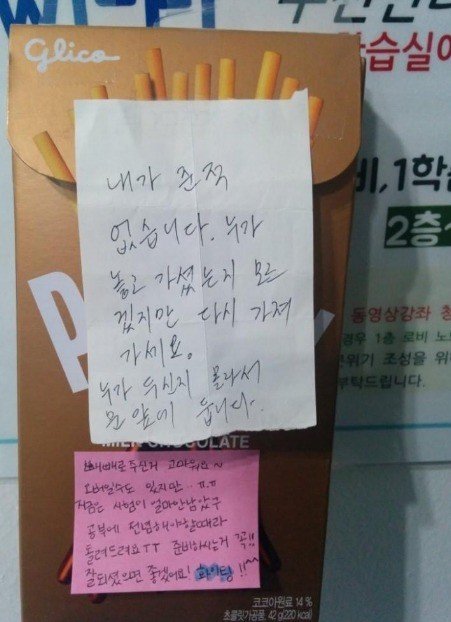 Glico
학습실
비,1학
2층
동영상강좌
경우 1층 로비
분위기 조성을 위
부탁드립니다.
내가 준적
없습니다. 누가
놓고 가셨는지 모르
겠지만 다시 가져
가세요.
누가 두신지 몰라서
문앞에 둡니다.
MILK CHOCOLATE
빼빼로 주신거 고마워요~
오버일수도 있지만.. ㅠ.ㅠ
지금은 시험이 얼마안남았구
공부에 전념해야할때라
돌려드려요TT 준비하시는거 꼭!!
잘되셨으면 좋겠어요! 화이팅!!^^
코코아원료 14 %
초콜릿가공품 42 g(220 kcal)